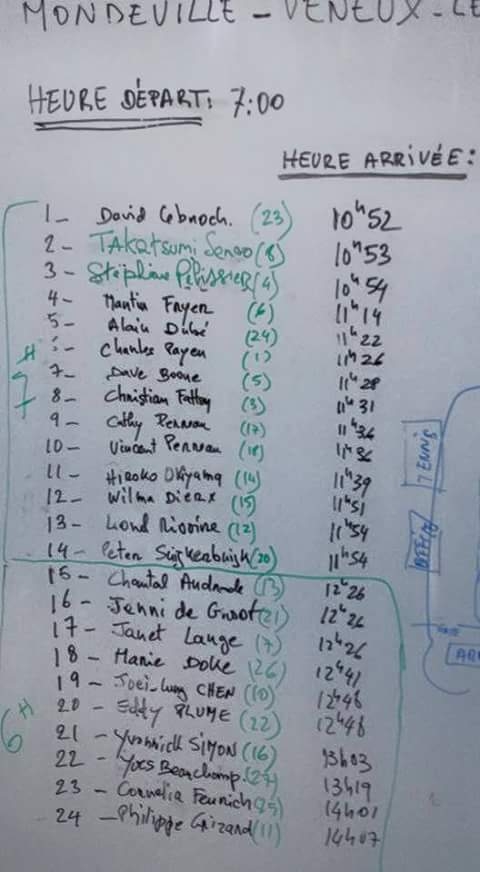 MONDEVILLE - VENEUX-LE
HEURE DÉPART: 7:00
HEURE ARRIVÉE:
1- David (23) 10h52
2- TAKATSUMI Senoo (8) 10h53
3- Stéphane PéLiSSiER (4) 10h54
4- Martin Fryer (6) 11h14
5- Alain Dubé (24) 11h22
Charles Payen (1) 11h26
7- Dave Boone (5) 11h28
8- Christian Fatton (3) 11h31
9- Cathy Perreau (17) 11h36
10- Vincent Perreau (18) 11h36
11- Hiroko Okiyama (14) 11h39
12- Wilma Dierx (15) 11h51
13- (12) 11h54
14- Peter (20) 11h54
7H
15- Chantal Andrade (13) 12h26
16- Jenni de Groot (21) 12h26
17- Janet Lange (7) 12h26
18- Marie Doke (26) 12h41
19- CHEN (10) 12h48
20- Eddy PLUME (22) 12h48
21- Yvannick SIMON (16) 13h03
22- Yves Beauchamp (27) 13h19
23- Cornelia 14h01
24- Philippe Grizard (11) 14h07
6H
TENNIS
OFFICE